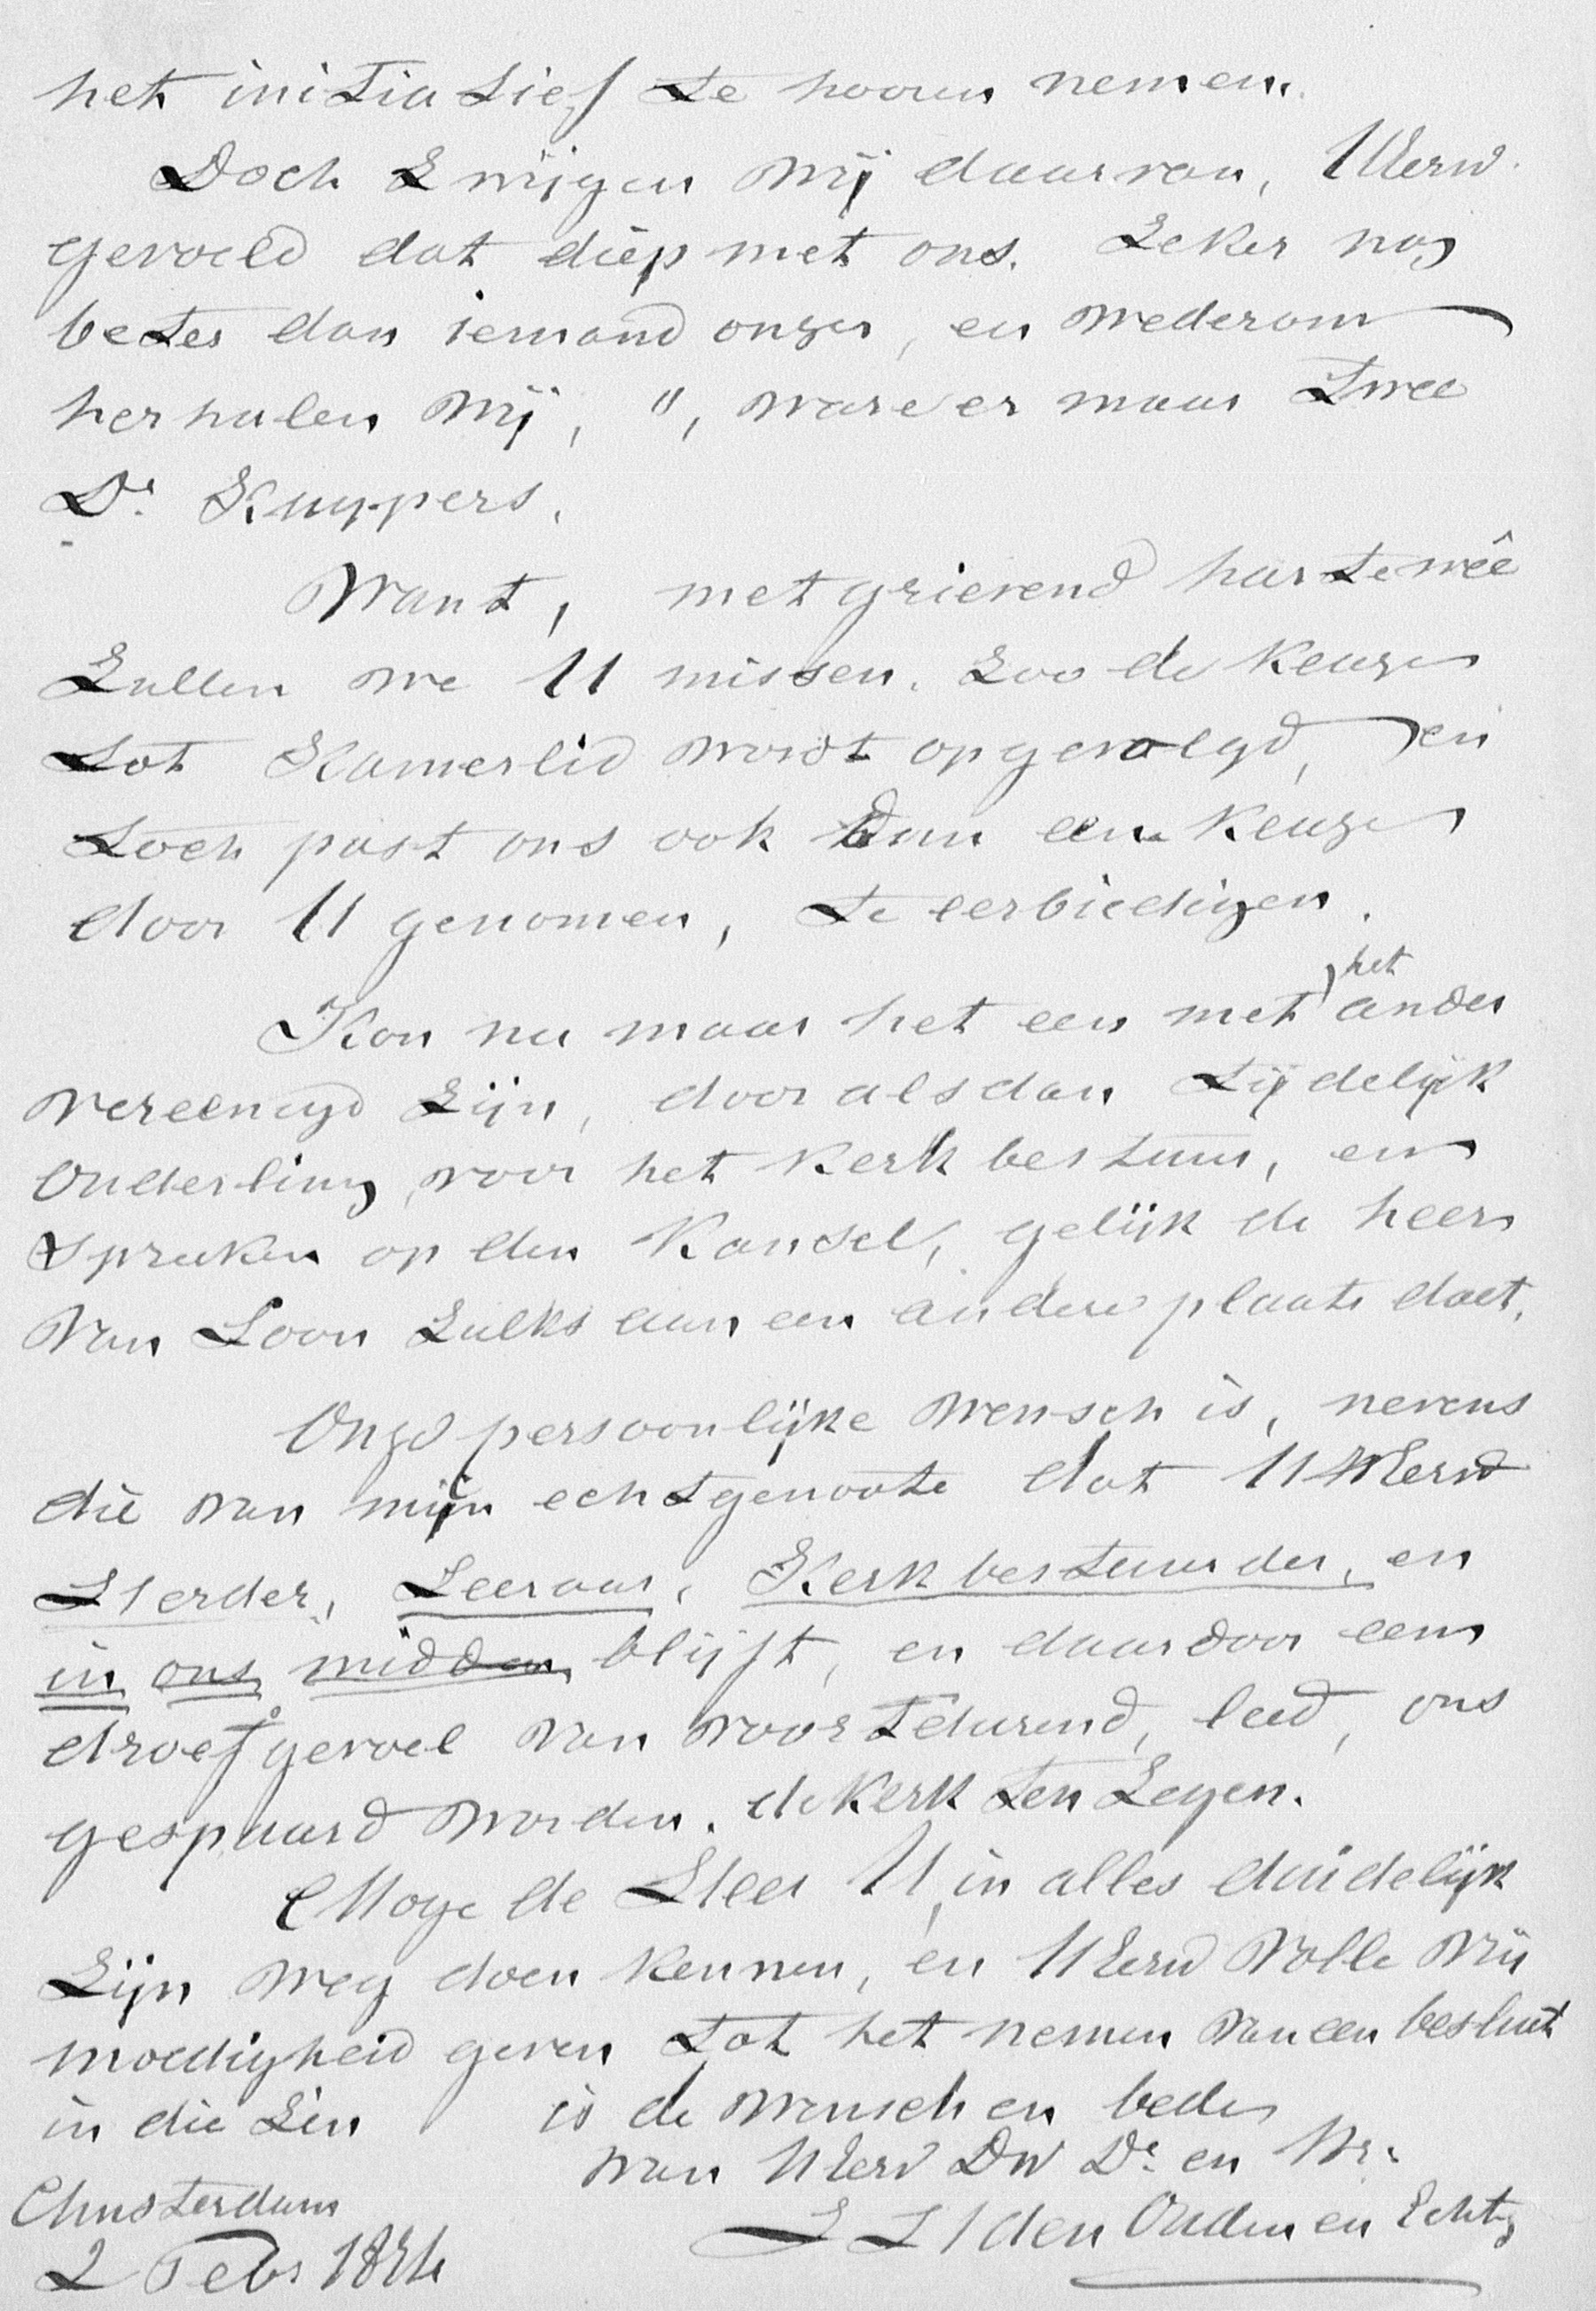 het initiatief te hooren nemen.
Doch zwijgen wij daarvan, UEerw.
gevoeld dat diep met ons. Zeker nog
beter dan iemand onzer, en wederom
herhalen wij, ", ware er maar twee
Dr. Kuypers.
Want, met grievend hartewêe
Zullen we U missen. Zoo de keuze
tot Kamerlid wordt opgevolgd, en
toch past ons ook dan eene keuze
door U genomen, te eerbiedigen.
Kon nu maar het een met het ander
vereenigd zijn, door alsdan tijdelijk
Ouderling voor het kerkbestuur, en
spreken op den Kansel, gelijk de heer
van Loon zulks aan een andere plaats doet.
Onze persoonlijke wensch is, nevens
die van mijn echtgenoote dat UWEerw
Herder, Leeraar, Kerkbestuurder, en
in ons midden blijft, en daardoor een
droef gevoel van voortdurend, leed, ons
gespaard worden. de Kerk ten Zegen.
Moge de Heer U, in alles duidelijk
Zijn weg doen kennen, en UEerw volle vrij
moedigheid geven tot het nemen van een besluit
in die Zin is de wensch en bede
van UEerw DW Dr. en Vr.
Amsterdam
H den Ouden en Echtg
2 Febr 1874